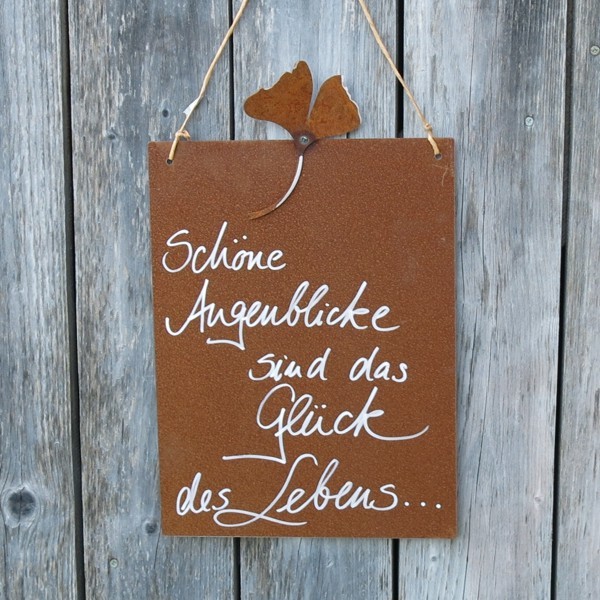 Schöne
Augenblicke
sind das
Glück
des Lebens...